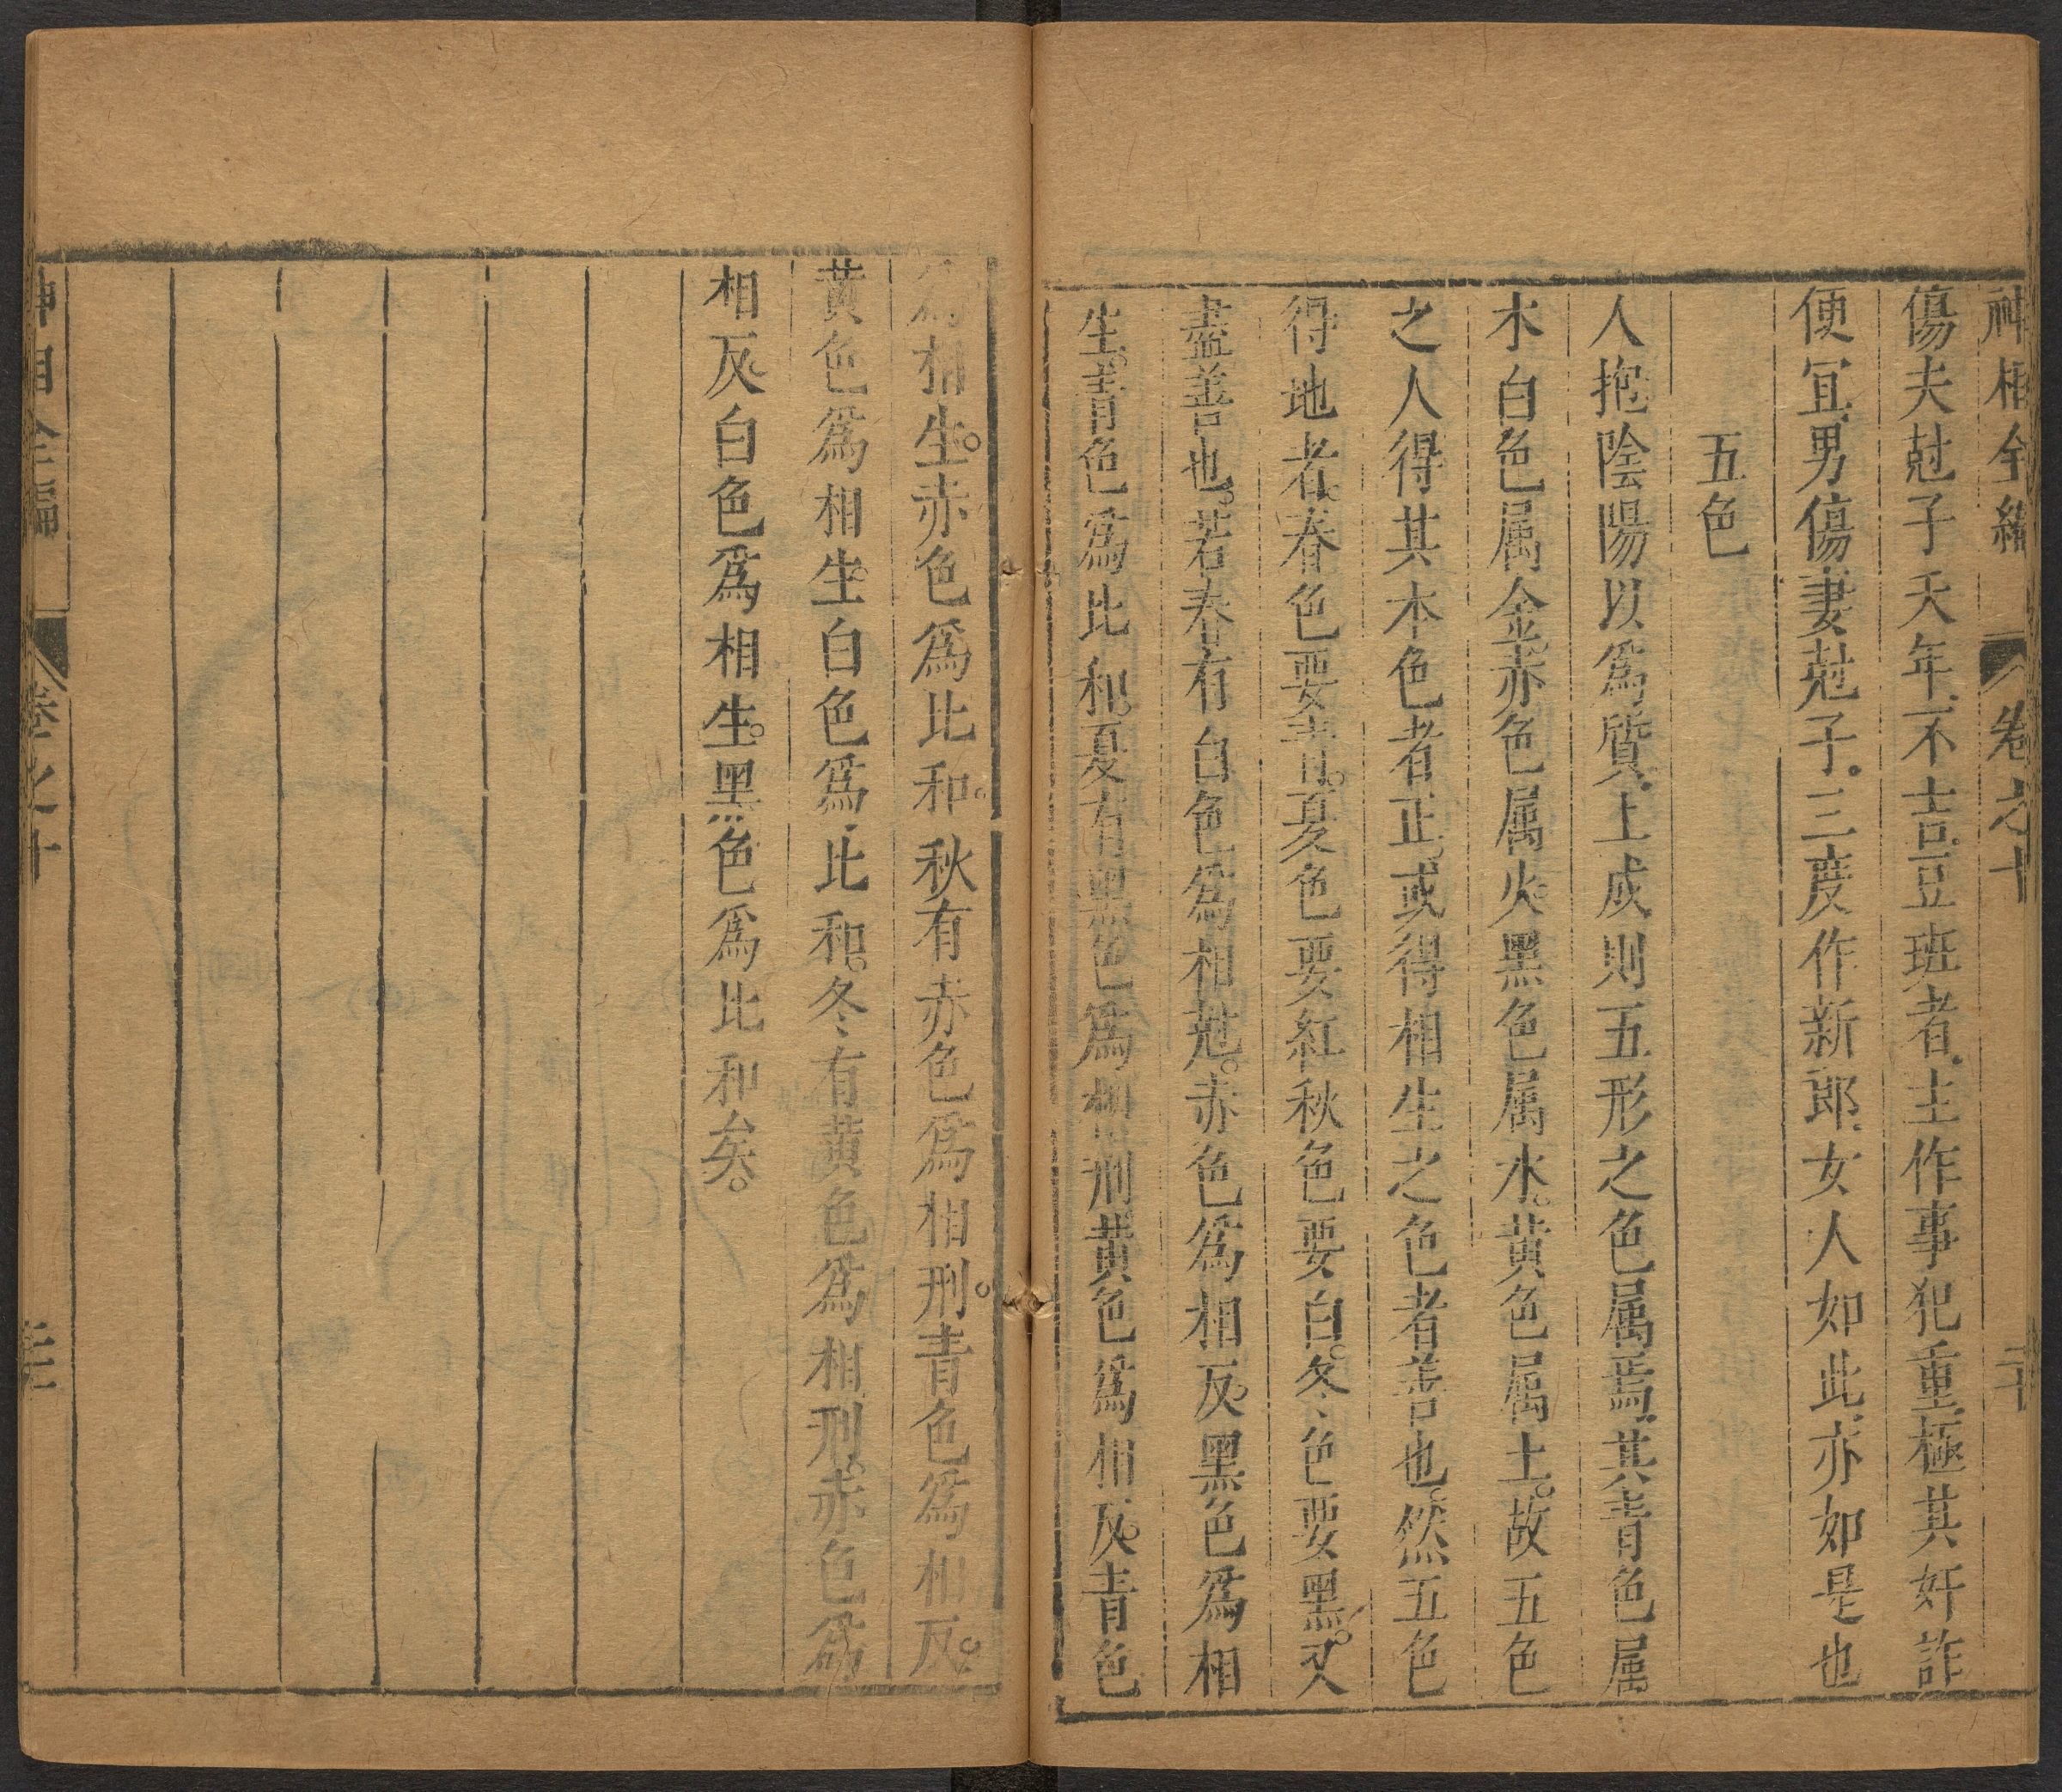 神相全編 卷之十 二十
傷夫尅子夭年不吉豆班者主作事犯重極其奸詐
便宜男傷妻尅子三度作新郎女人如此亦如是也
五色
人抱陰陽以爲質上成則五形之色属焉其青色属
木白色属金赤色属火黑色属水黄色属土故五色
之人得其本色者正或得相生之色者善也然五色
得地者春色要青夏色要紅秋色要白冬色要黑又
盡善也若春有白色爲相尅赤色爲相反黑色爲相
生青色爲比和夏有黑色爲相刑黄色爲相反青色
爲相生赤色爲比和秋有赤色爲相刑青色爲相反
黄色爲相生白色爲比和冬有黄色爲相刑赤色爲
相反白色爲相生黑色爲比和矣
神相全編 卷之十